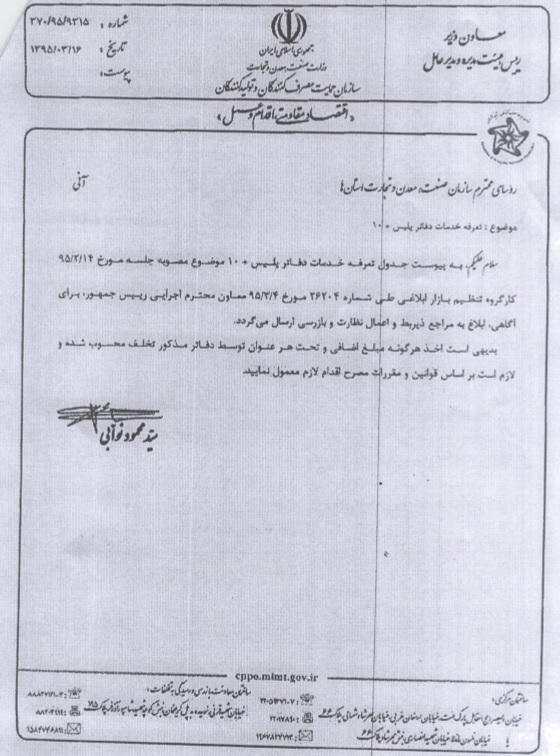 معاون وزیر
رئیس هیئت مدیره و مدیر عامل
جمهوری اسلامی ایران
وزارت صنعت، معدن و تجارت
سازمان حمایت مصرف کنندگان و تولید کنندگان
شماره : ۳۷۰/۹۵/۹۳۱۵
تاریخ : ۱۳۹۵/۰۳/۱۶
پیوست:
«اقتصاد مقاومتی، اقدام و عمل»
روسای محترم سازمان صنعت، معدن و تجارت استان ها
آنی
موضوع : تعرفه خدمات دفاتر پلیس + ۱۰
سلام علیکم، به پیوست جدول تعرفه خدمات دفاتر پلیس + ۱۰ موضوع مصوبه جلسه مورخ ۹۵/۲/۱۴
کارگروه تنظیم بازار ابلاغی طی شماره ۲۶۲۰۴ مورخ ۹۵/۳/۴ معاون محترم اجرایی رییس جمهور، برای
آگاهی، ابلاغ به مراجع ذیربط و اعمال نظارت و بازرسی ارسال می‌گردد.
بدیهی است اخذ هرگونه مبلغ اضافی و تحت هر عنوان توسط دفاتر مذکور تخلف محسوب شده و
لازم است بر اساس قوانین و مقررات مصرح اقدام لازم معمول نمایند.
سید محمود نوابی
cppo.mimt.gov.ir
ساختمان مرکزی:
ساختمان معاونت بازرسی و رسیدگی به تخلفات: